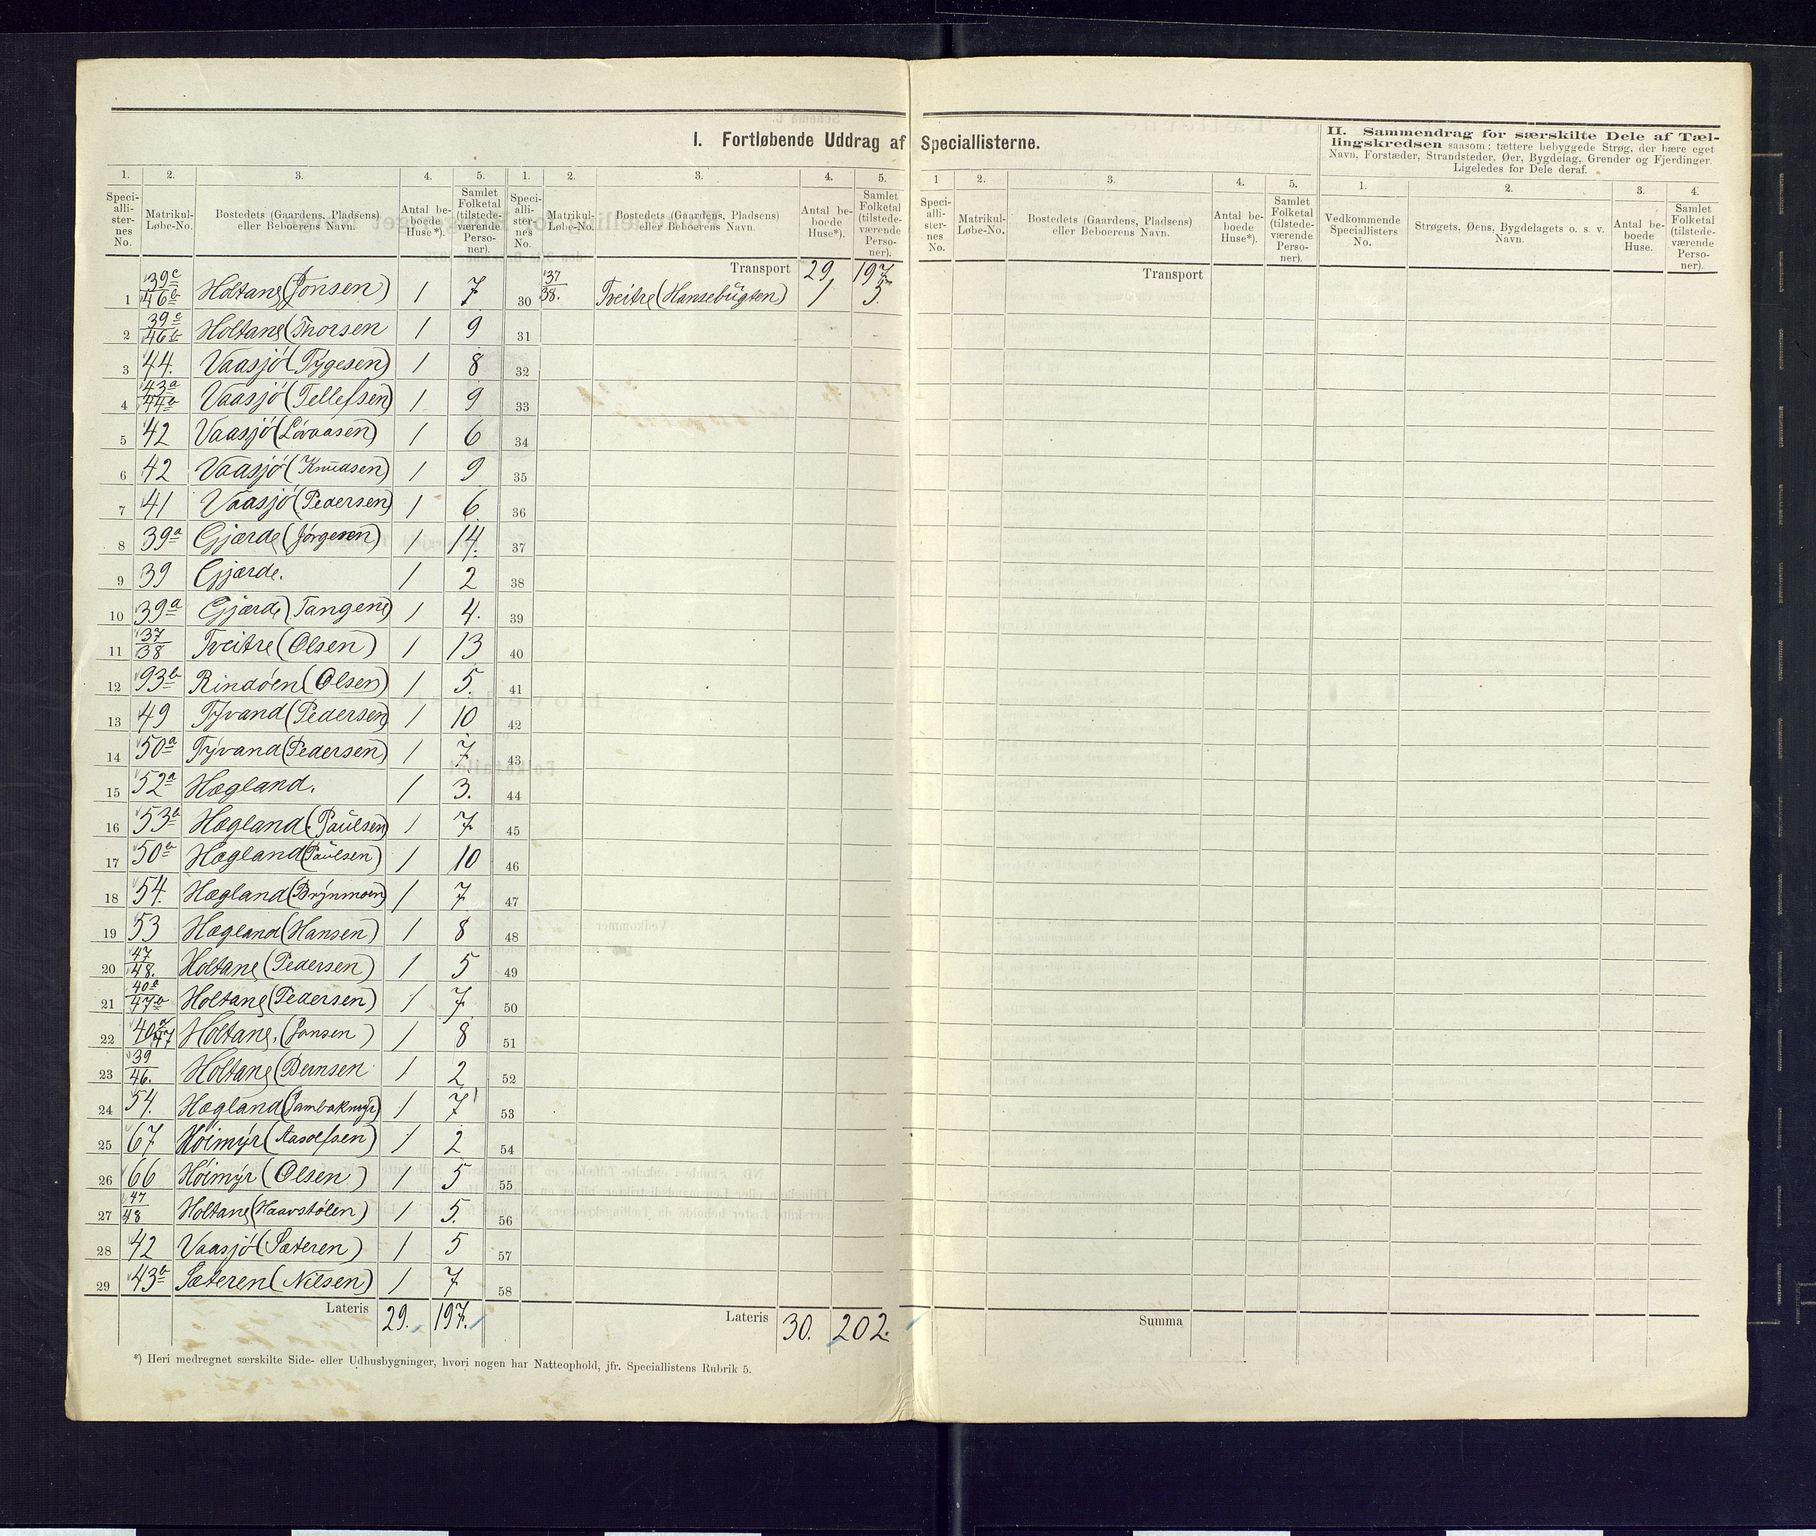 I. Fortløbende Uddrag af Speciallisterne.
II. Sammendrag for særskilte Dele af Tæl-
lingskredsen saasom: tættere bebyggede Strøg, der bære eget
Navn, Forstæder, Strandsteder, Øer, Bygdelag, Grender og Fjerdinger.
Ligeledes for Dele deraf.
1. 2. 3. 4. 5. 1. 2. 3. 4. 5. 1 2. 3. 4. 5. 1. 2. 3. 4.
Speciallisternes No. Matrikul-Løbe-No. Bostedets (Gaardens, Pladsens) eller Beboerens Navn. Antal beboede Huse*). Samlet Folketal (tilstedeværende Personer).
Speciallisternes No. Matrikul-Løbe-No. Bostedets (Gaardens, Pladsens) eller Beboerens Navn. Antal beboede Huse*). Samlet Folketal (tilstedeværende Personer).
Speciallisternes No. Matrikul-Løbe-No. Bostedets (Gaardens, Pladsens) eller Beboerens Navn. Antal beboede Huse*). Samlet Folketal (tilstedeværende Personer).
Vedkommende Speciallisters No. Strøgets, Øens, Bygdelagets o. s. v. Navn. Antal beboede Huse. Samlet Folketal (tilstedeværende Personer).
Transport 29 197
Transport
1 39c/46b Holtane (Jonsen) 1 7
30 37/38. Tveitre (Hansebugten) 1 5
2 39c/46b Holtane (Thorsen 1 9 31
3 44. Vaasjö (Tygesen) 1 8 32
4 43a/44b Vaasjö (Tellefsen) 1 9 33
5 42 Vaasjö (Lövaasen) 1 6 34
6 42 Vaasjö (Knudsen) 1 9 35
7 41 Vaasjö (Pedersen) 1 6 36
8 39a Gjærde (Jörgensen) 1 14. 37
9 39 Gjærde. 1 2 38
10 39a Gjærde (Tangene) 1 4. 39
11 37/38 Tveitre (Olsen) 1 13 40
12 93b Rindöen (Olsen) 1 5. 41
13 49 Tyvand (Pedersen) 1 10 42
14 50a Tyvand (Pedersen) 1 7 43
15 52a Hægland. 1 3. 44
16 53b Hægland (Paulsen) 1 7 45
17 50b Hægland (Paulsen) 1 10 46
18 54. Hægland (Brynmoen) 1 7 47
19 53 Hægland (Hansen) 1 8 48
20 47/48. Holtane (Pedersen) 1 5 49
21 47b Holtane (Pedersen) 1 7 50
22 47 Holtane, (Jonsen) 1 8 51
23 39/46. Holtane (Bernsen 1 2 52
24 54. Hægland 1 7 53
25 67 Höimyr (Aasolfsen) 1 2 54
26 66 Höimyr (Olsen) 1 5 55
27 47/48 Holtane (Haavstölen) 1 5. 56
28 42 Vaasjö (Sæteren) 1 5 57
29 43b Sæteren (Nilsen) 1 7 58
Lateris 29. 197. Lateris 30. 202. Summa
*) Heri medregnet særskilte Side- eller Udhusbygninger, hvori nogen har Natteophold, jfr. Speciallistens Rubrik 5.